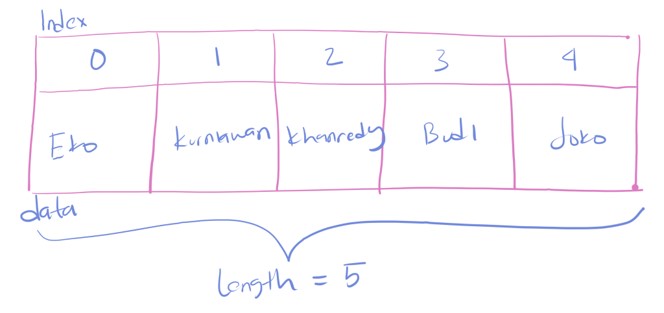 Index
0 1 2 3 4
Eko Kurniawan Khannedy Budi Joko
data
length = 5